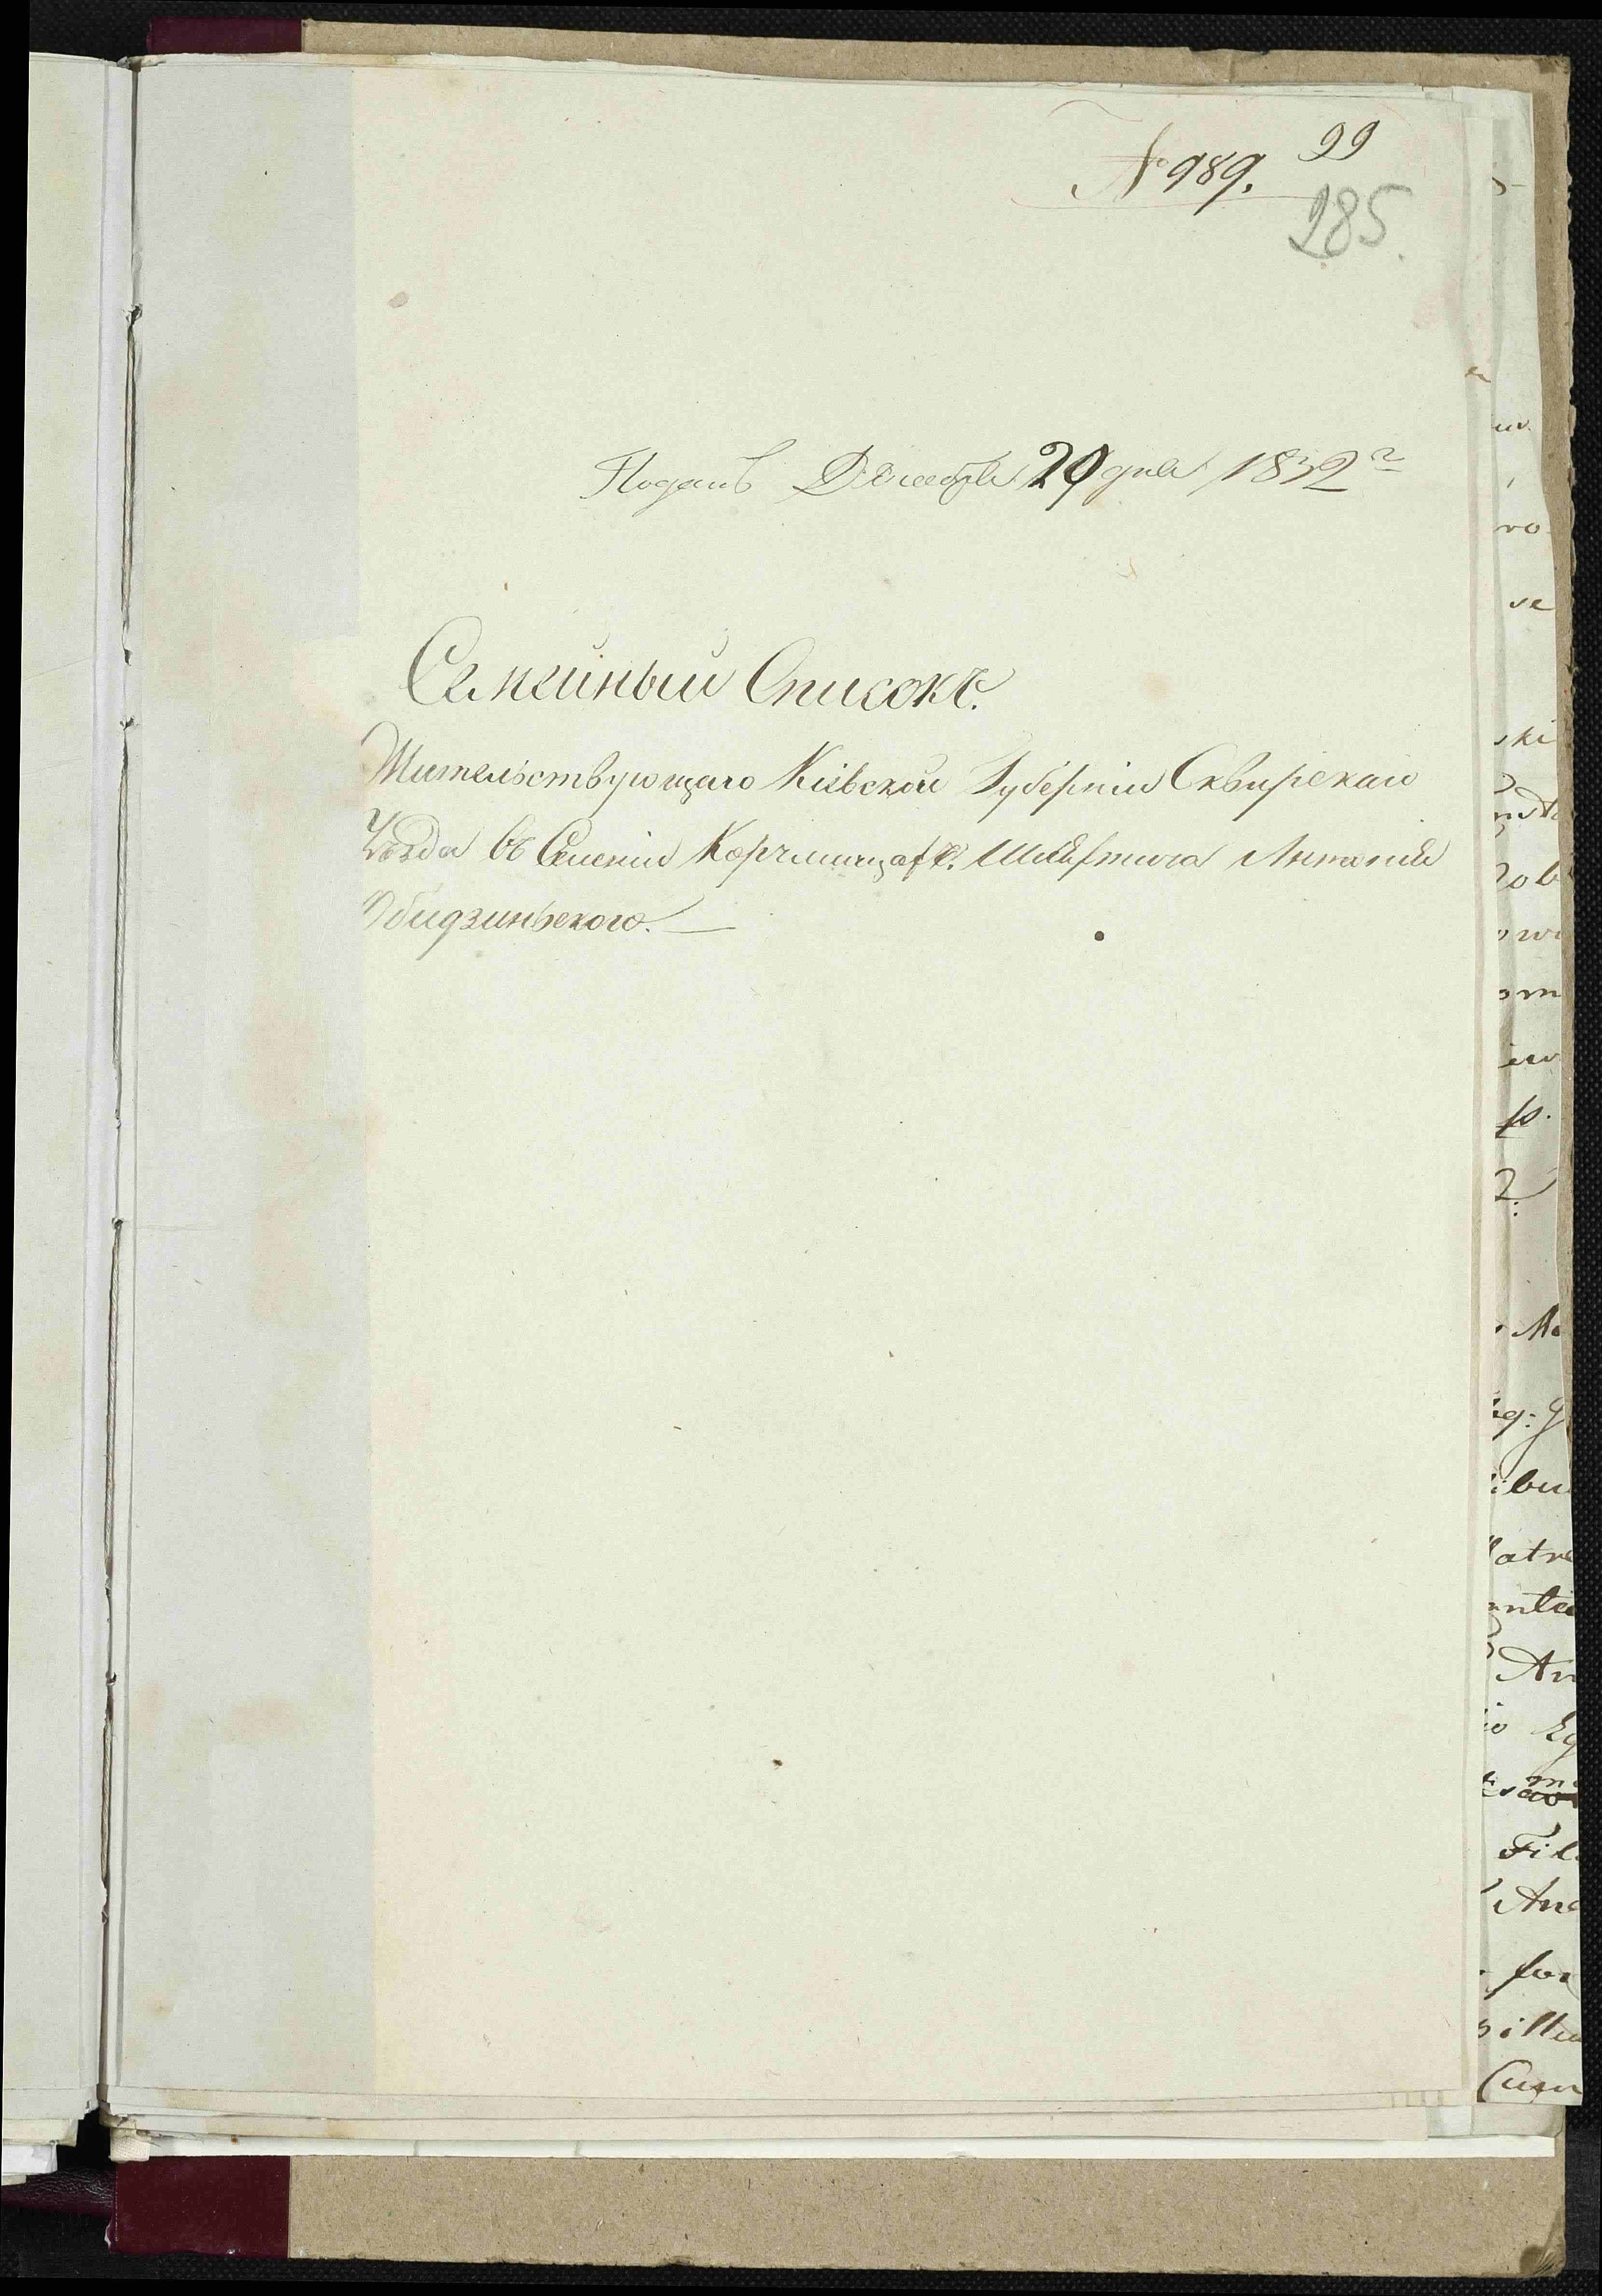 № 989. 99
285.
Поданъ Декабря 29 дня 1832 г
Семейный Списокъ.
Жительствующаго Кіевской Губерніи Сквирскаго
Уѣзда въ Селеніи Шляхтича Антонія